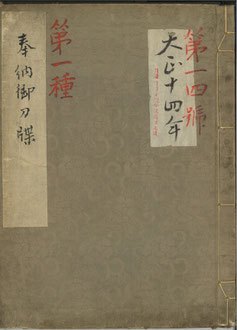 第一四號
大正十四年
第一種
奉納御刀牒